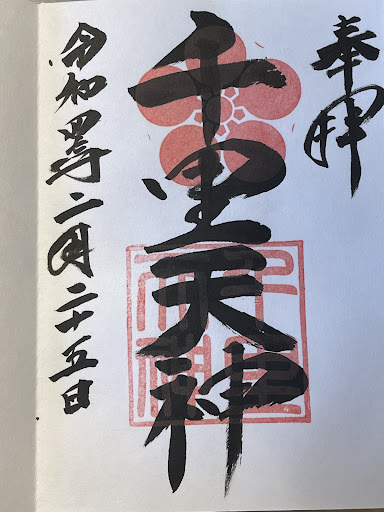 奉拝
千里天神
令和四年二月二十五日